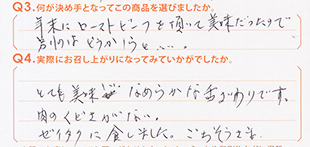 Q3.何が決め手となってこの商品を選びましたか。
年末にローストビーフを頂いて美味だったので
別のはどうかしらと・・・。
Q4.実際にお召し上がりになってみていかがでしたか。
とても美味で なめらかな舌ざわりです。
肉のくどさがない。
ゼイタクに食しました。ごちそうさま